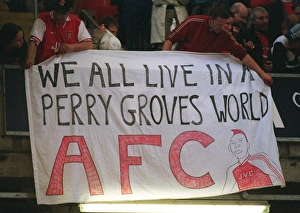 WE ALL LIVE IN A
PERRY GROVES WORLD
AFC
JVC